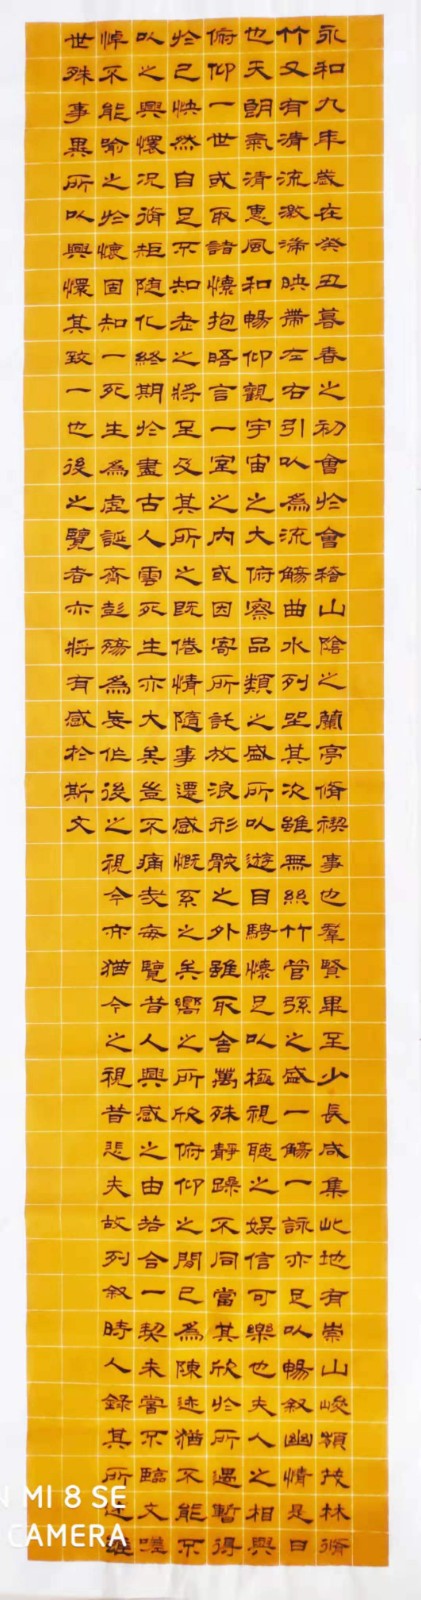 永和九年歲在癸丑暮春之初會於會稽山陰之蘭亭脩禊事也羣賢畢至少長咸集此地有崇山峻領茂林脩
竹又有清流激湍映帶左右引以為流觴曲水列坐其次雖無絲竹管弦之盛一觴一詠亦足以暢敘幽情是日
也天朗氣清惠風和暢仰觀宇宙之大俯察品類之盛所以遊目騁懷足以極視聽之娛信可樂也夫人之相與
俯仰一世或取諸懷抱晤言一室之內或因寄所託放浪形骸之外雖取舍萬殊靜躁不同當其欣於所遇暫得
於己快然自足不知老之將至及其所之既倦情隨事遷感慨系之矣嚮之所欣俯仰之間已為陳迹猶不能不
以之興懷況脩短隨化終期於盡古人雲死生亦大矣豈不痛哉每覽昔人興感之由若合一契未嘗不臨文嗟
悼不能喻之於懷固知一死生為虛誕齊彭殤為妄作後之視今亦猶今之視昔悲夫故列敘時人錄其所述雖
世殊事異所以興懷其致一也後之覽者亦將有感於斯文
MI 8 SE
CAMERA